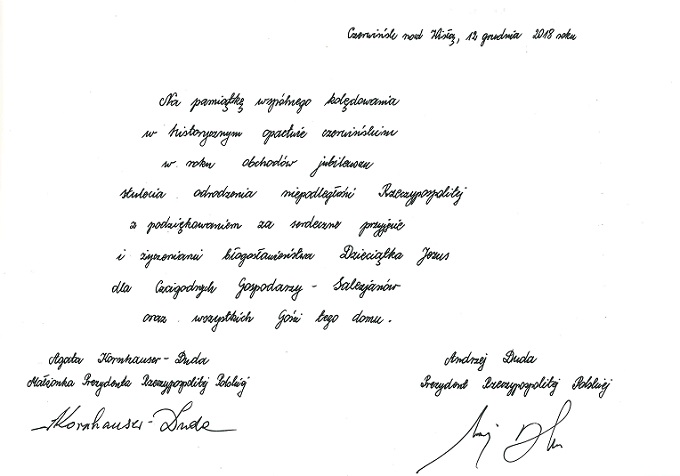 Czerwińsk nad Wisłą, 12 grudnia 2018 roku
Na pamiątkę wspólnego kolędowania
w historycznym opactwie czerwińskim
w roku obchodów jubileuszu
stulecia odrodzenia niepodległości Rzeczypospolitej
z podziękowaniem za serdeczne przyjęcie
i życzeniami błogosławieństwa Dzieciątka Jezus
dla Czcigodnych Gospodarzy - Salezjanów
oraz wszystkich Gości tego domu.
Agata Kornhauser-Duda
Małżonka Prezydenta Rzeczypospolitej Polskiej
AKornhauser-Duda
Andrzej Duda
Prezydent Rzeczypospolitej Polskiej